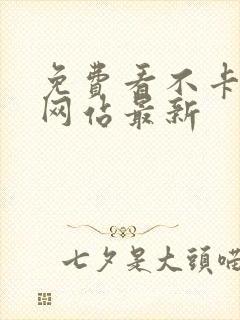 免費看不卡
网佔最新
七夕是大頭喵